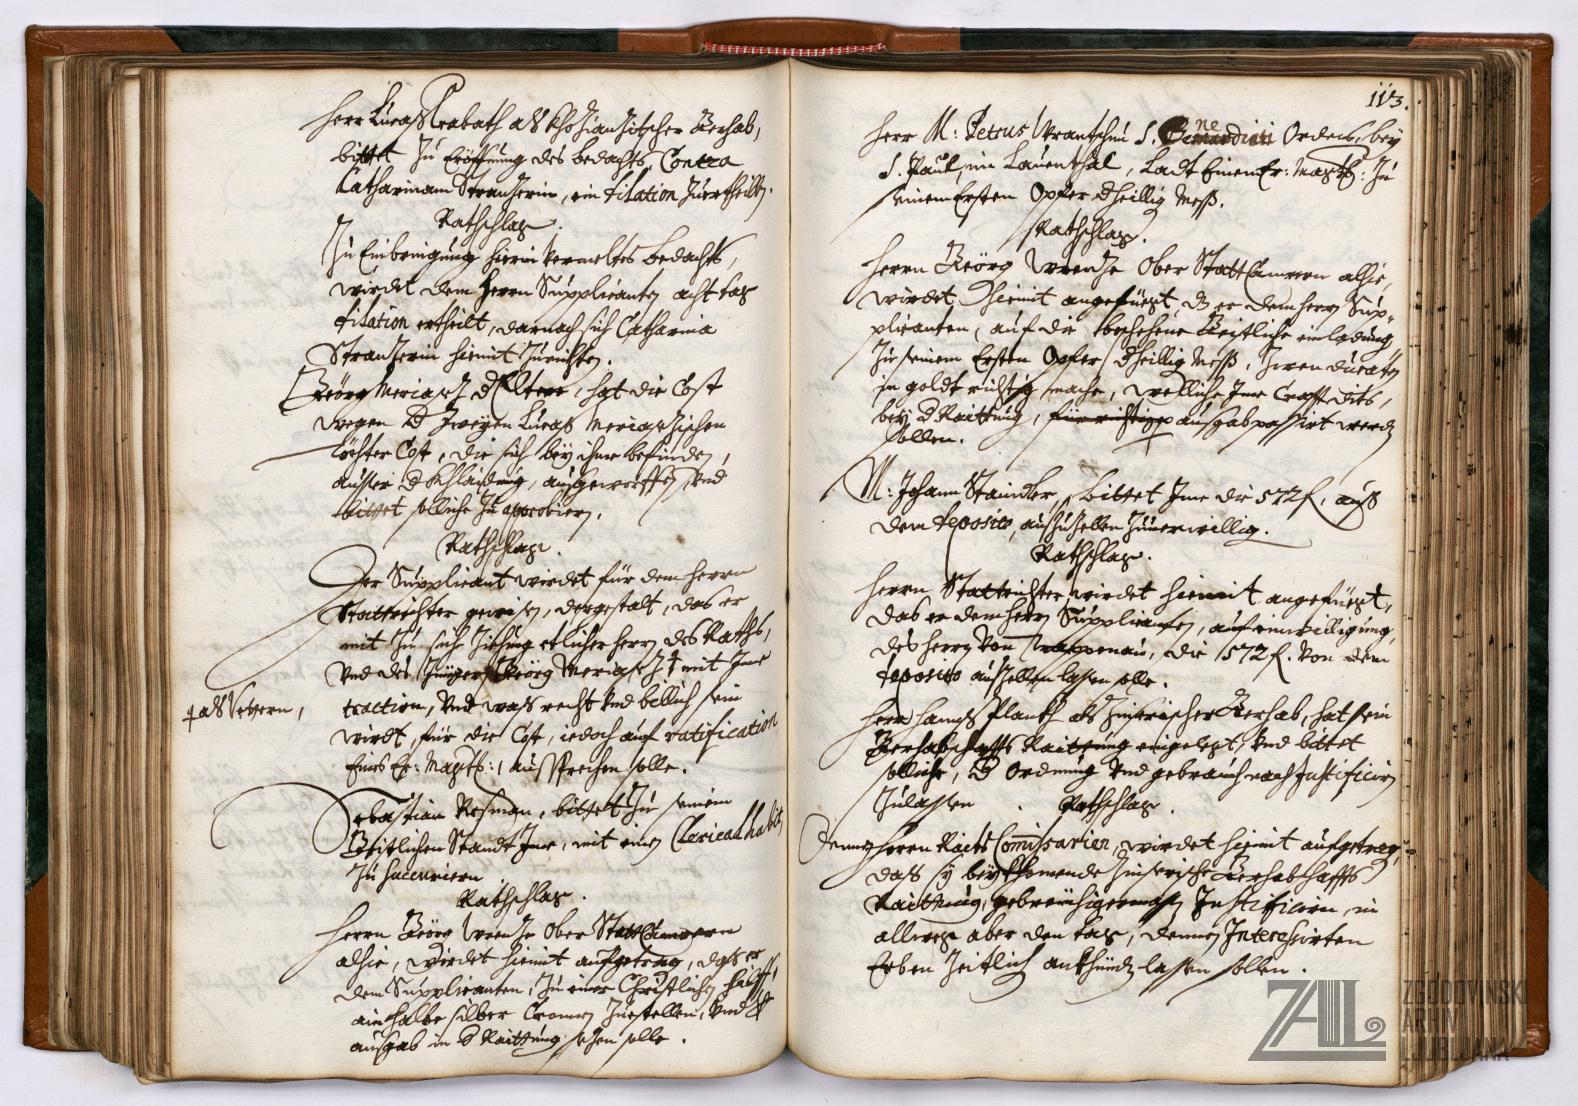 Herr Lucaß Crabath alß Khosiansitscher Gerhab,
bittet Zu Eröffnung des bedachts, Contra
Catharinam Stranserin, ein dilation Zuertheillen.
Rathschlag.
Zu Einbringung hierin vermeltes bedachts,
wirdet dem Herrn Supplicanten acht tag
dilation ertheilt, darnach sich Catharina
Stranserin hiemit Zurichten.
Geörg d Elter, hat die Cost
wegen d Zweyen Lucaß
töchter Cost, die sich bey ihme befinden,
ausser d Khlaidung, außgeworffen, Vnd
bittet solliche Zu approbiern.
Rathschlag.
Der Supplicant wirdet für dem Herrn
Stattrichter gewisen, dergestalt, das er
mit Zu sich Ziehung etlicher Herrn des Raths,
Vnd des Jünger Geörg mit Ime
als Vettern,
traction, Vnd waß recht Vnd billich sein
wirdt, für die Cost, iedoch auf ratification
Eines Er: Magts:, aussprechen solle.
Sebastian Resman, bittet Zu seinem
Geistlichen Standt Ime, mit einem Clerical habit
Zu succuriern
Rathschlag.
Herrn Geörg Wrenze Ober Statt Cammern
alhie, wirdet hiemit aufgetragen, daß er
dem Supplicanten, Zu einer Christlichen hülff,
ain halbe silber Cronen Zuestellen, Vnd Zu
ausgab in d Raittung sezen solle.
113.
Herr M: Petrus Wrantschui S. Ordens, bey
S. Paul, im Lauenthal, Ladt Einen Er: Magts: Zu
seinem Ersten Opfer d heillig Meß.
Rathschlag.
Herrn Geörg Wrenze Ober Statt Cammern alhie,
wirdet hiemit angefüegt, dz er dem Herrn Sup-
plicanten, auf die beschehene Geistliche einladung
Zu seinem Ersten Opfer d heillig Meß, Zwen ducaten
in goldt richtig mache, welliche Ime Crafft dits,
bey d Raittung, für richtige ausgab passirt werden
sollen.
M: Johann Staindler, bittet Ime die 572 f. auß
dem deposito, auszustellen Zuuerwillig.
Rathschlag.
Herrn Stattrichter wirdet hiemit angefüegt,
das er dem Herrn Supplicanten, auf einwilligung,
des Herrn Von die 572 f. Von dem
deposito ausstellen lassen solle.
Herr Hanß Plankh als Gerhab, hat sein
Gerhabschaffts Raittung eingelegt, Vnd bittet
solliche, d Ordnung Vnd gebrauch nach Justificirn
Zulassen. Rathschlag.
Dennen Herrn Raits Comissarien, wirdet hiemit aufgetragen,
dass sy beykhomende Gerhabschaffts
Raittung, gebreuchigermassen Justificirn, in
allweg aber den tag, dennen Interessirten
Erben Zeitlich ankhünden lassen sollen.
ZAL ZGODOVINSKI
ARHIV
LJUBLJANA